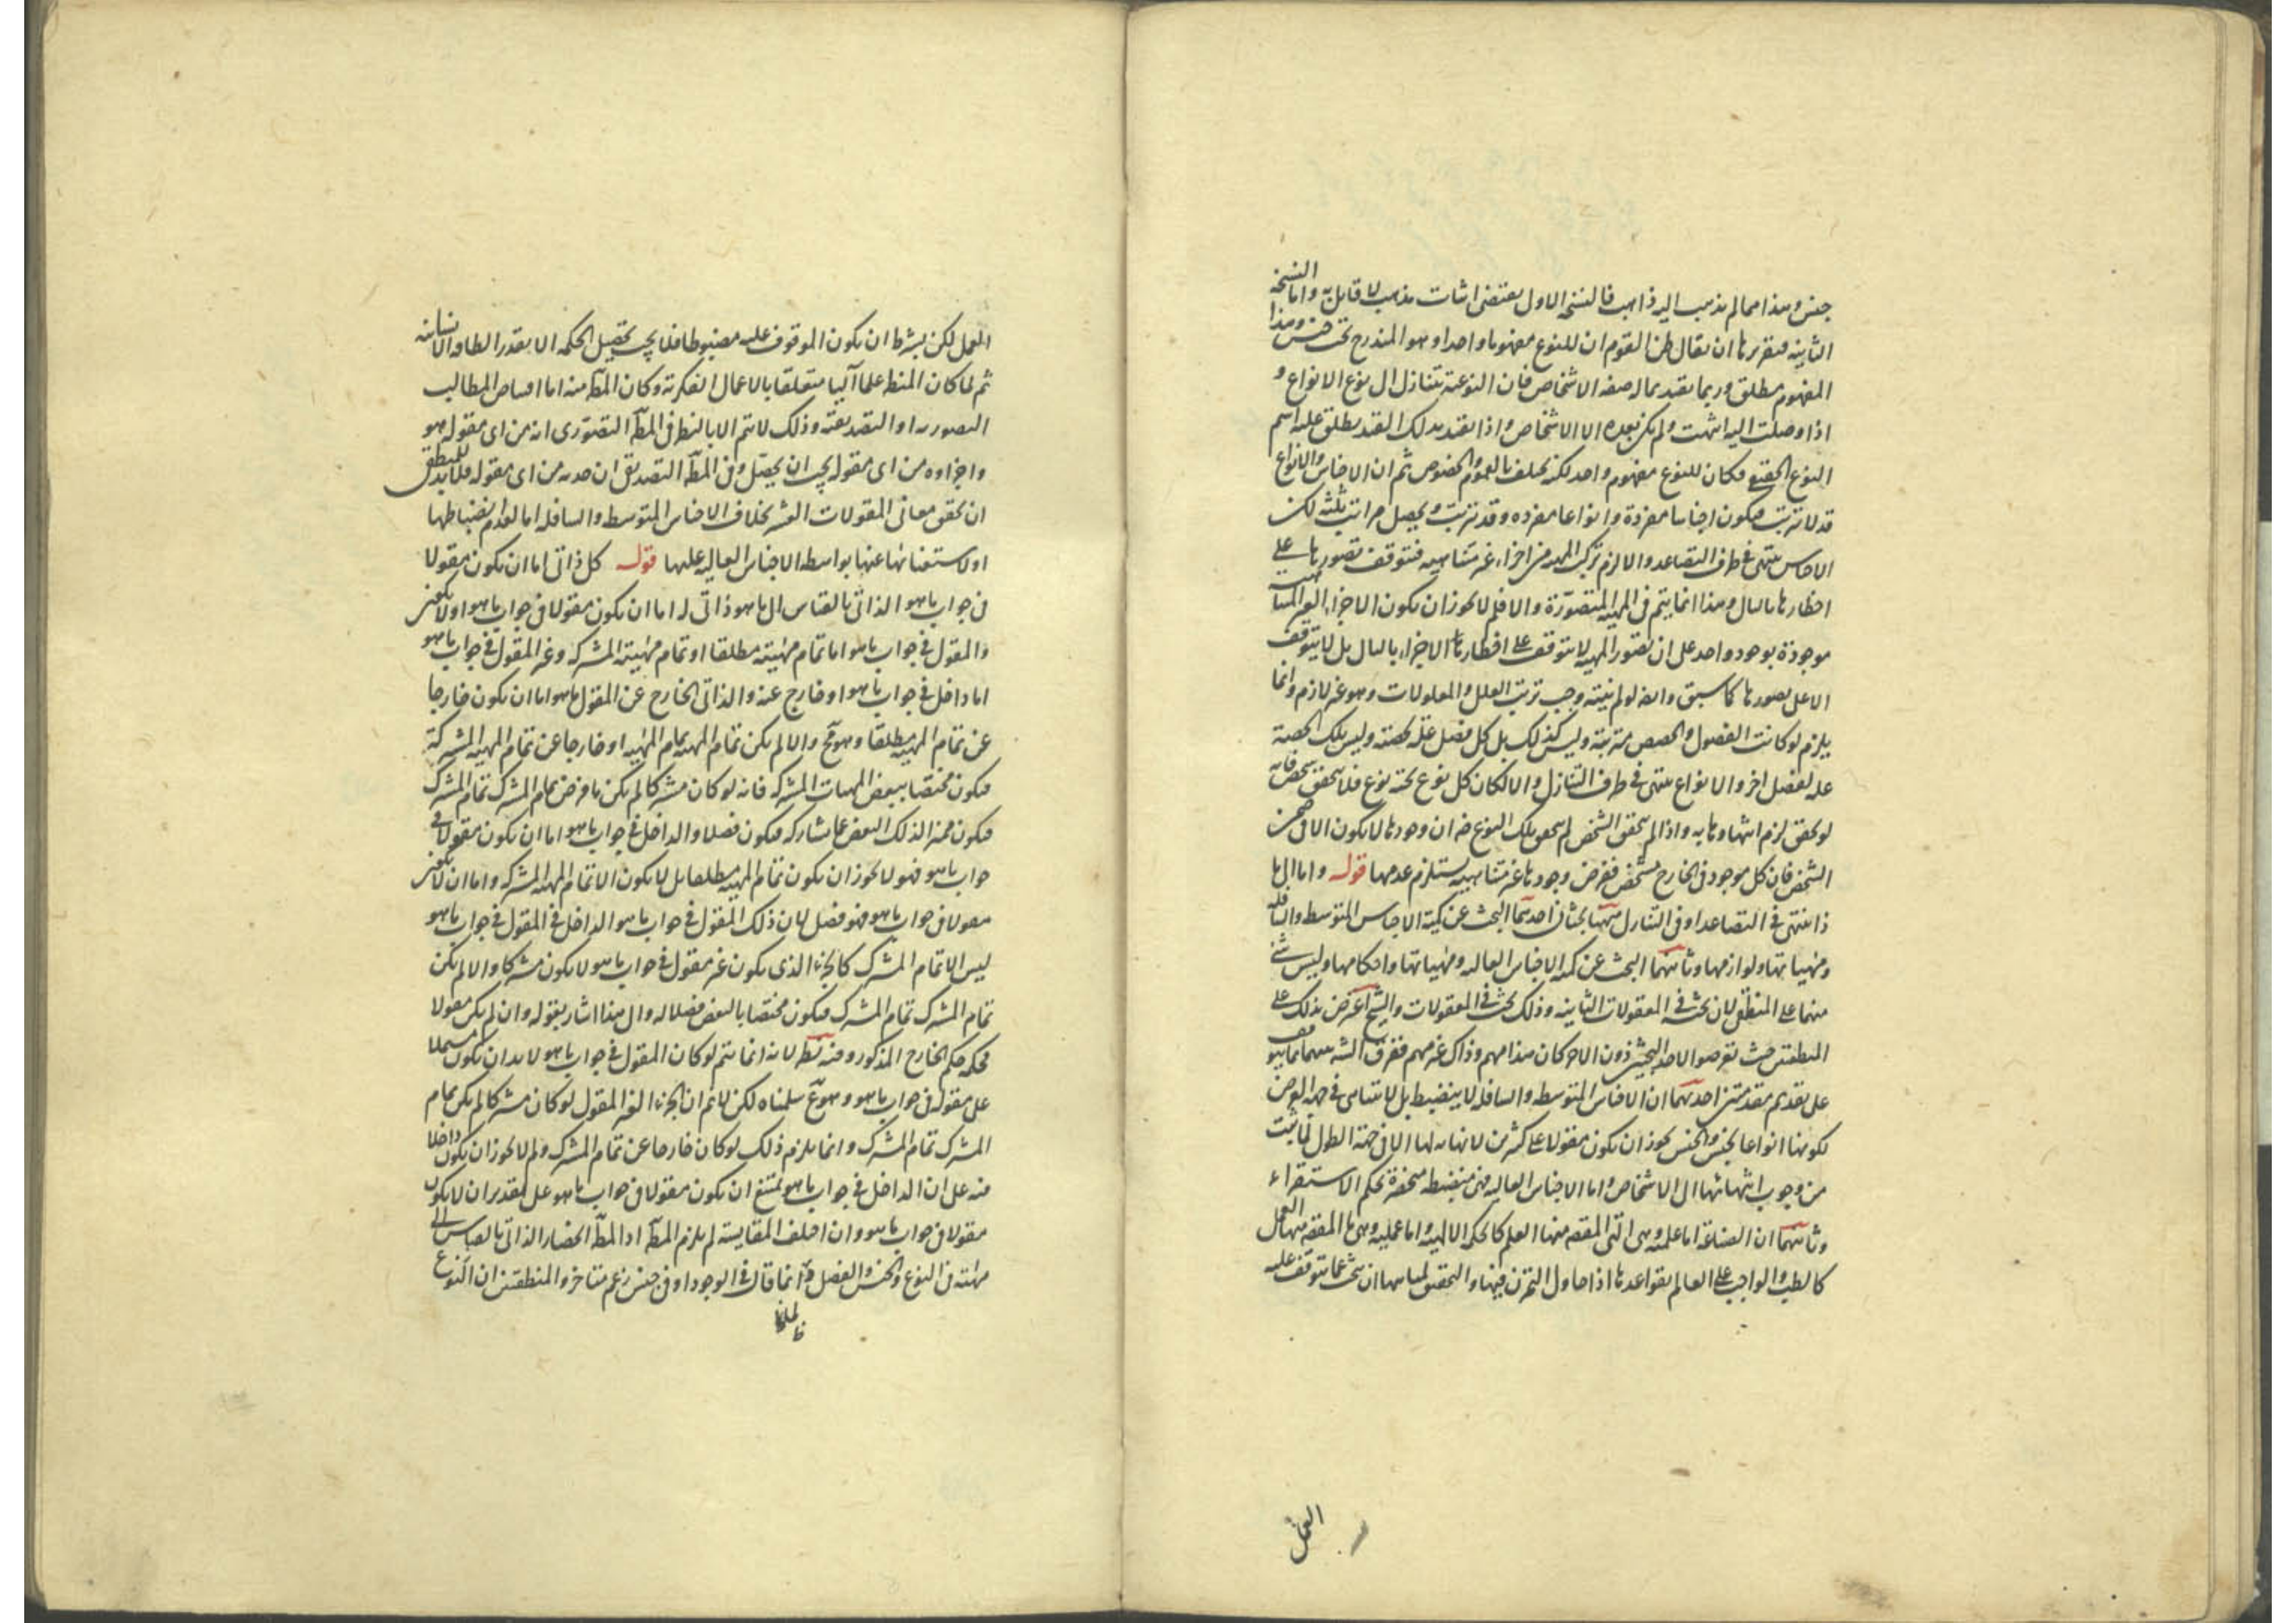 جنس وهذا مما لم يذهب اليه ذاهب فالنسخة الاول يقتضى اثبات مذهب لا قايل به واما النسخة
الثانية فتقريرها ان يقال ظن القوم ان للنوع مفهوما واحدا وهو المندرج تحت جنس وهذا
المفهوم مطلق وربما يقيد بماله صفة الاشخاص فان النوعية تتنازل الى نوع الانواع و
اذا وصلت اليه انتهت ولم يكن بعده الا الاشخاص واذا يقيد بذلك القيد يطلق عليه اسم
النوع الحقيقى فكان للنوع مفهوم واحد لكنه يختلف بالعموم والخصوص ثم ان الاجناس والانواع
قد لا تترتب فيكون اجناسا مفردة وانواعا مفرده وقد تترتب ويحصل مراتب ثلثة لكن
الاجناس ينتهى فى طرف التصاعد والا لزم تركب المهية من اجزاء غير متناهيه فتتوقف تصورها على
احظارها بالبال وهذا انما يتم فى المهية المتصورة والا فلم لا يجوز ان يكون الاجزاء الغير المتناهية
موجودة بوجود واحد على ان تصور المهية لا يتوقف على اخطار الاجزاء بالبال بل لا يتوقف
الا على تصورها كما سبق وايضا لو لم ينته وجب ترتب العلل والمعلولات وهو غير لازم وانما
يلزم لو كانت الفصول والحصص مترتبة وليس كذلك بل كل فصل علة لحصته وليس تلك الحصة
علة لفصل اخر والانواع ينتهى فى طرف التنازل والا لكان كل نوع تحته نوع فلا يتحقق شخص فانه
لو تحقق لزم انتهاوها به واذا لم يتحقق الشخص لم يتحقق تلك النوع ضرة ان وجودها لا يكون الا فى ضمن
الشخص فان كل موجود فى الخارج مشخص ففرض وجودها غير متناهيه يستلزم عدمها قوله واما الى ما
ذا ينتهى فى التصاعد او فى التنازل ههنا بحثان احدهما البحث عن كمية الاجناس المتوسطه والسافله
ومهياتها ولوازمها وثانيهما البحث عن كمية الاجناس العاليه ومهياتها واحكامها وليس شئ
منهما على المنطقى لان بحثه فى المعقولات الثانيه وذلك بحث فى المعقولات والشيخ اعترض بذلك على
المنطقيين حيث تعرضوا لاحد البحثين دون الاخر كان هذا مهم وذاك غير مهم ففرق الش بينهما بما هو
على تقديم مقدمتين احديهما ان الاجناس المتوسطه والسافله لا ينضبط بل لا يتناهى فى جهة العرض
لكونها انواعا للجنس والجنس يجوز ان يكون مقولا على كثيرين لا نهايه لها الا فى جهة الطول لما يثبت
من وجوب انتهائها الى الاشخاص واما الاجناس العاليه فهى منضبطه منحصرة بحكم الاستقراء
وثانيهما ان الصناعة اما علميه وهى التى المقصه منها العلم كالحكمه الالهيه واما عمليه وهى ما المقصه منها العمل
كالطب والواجب على العالم بقواعدها اذا حاول التمرن فيها والتحقيق لمباديها ان يبحث عما يتوقف عليه
العمل
العمل لكن بشرط ان يكون الموقوف عليه مضبوطا فلا يجب تحصيل الحكمه الا بقدر الطاقه الانسانيه
ثم لما كان المنط علما آليا متعلقا بالاعمال الفكرية وكان المط منه اما اقتناص المطالب
التصوريه او التصديقيه وذلك لا يتم الا بالنظر فى المط التصورى انه من اى مقوله هو
واجزاوه من اى مقوله يجب ان يحصل وفى المط التصديقى ان حديه من اى مقوله فلابد للمنطقى
ان يحقق معانى المقولات العشر بخلاف الاجناس المتوسط والسافله اما لعدم انضباطها
او لاستغنائها عنها بواسطه الاجناس العاليه عليها قوله كل ذاتى اما ان يكون مقولا
فى جواب ما هو الذاتى بالقياس الى ما هو ذاتى له اما ان يكون مقولا فى جواب ما هو او لا يكون
والمقول فى جواب ما هو اما تمام مهيته مطلقا او تمام مهيته المشتركه وغير المقول فى جواب ما هو
اما داخل فى جواب ما هو او خارج عنه والذاتى الخارج عن المقول ما هو اما ان يكون خارجا
عن تمام المهيه مطلقا وهو مح والا لم يكن تمام المهيه تمام المهيه او خارجا عن تمام المهيه المشتركة
فيكون مختصا ببعض المهيات المشتركه فانه لو كان مشتركا لم يكن ما فرض تمام المشترك تمام المشترك
فيكون مميزا لذلك البعض عما يشاركه فيكون فصلا والداخل فى جواب ما هو اما ان يكون مقولا فى
جواب ما هو فهو لا يجوز ان يكون تمام المهيه مطلقا بل لا يكون الا تمام المهيه المشتركه واما ان لا يكون
مقولا فى جواب ما هو فهو فصل لان ذلك المقول فى جواب ما هو الداخل فى المقول فى جواب ما هو
ليس الا تمام المشترك كالجزء الذى يكون غير مقول فى جواب ما هو لا يكون مشتركا والا لم يكن
تمام المشترك تمام المشترك فيكون مختصا بالبعض فصلا له والى هذا اشار بقوله وان لم يكن مقولا
فحكمه حكم الخارج المذكور وفيه نظر لانه انما يتم لو كان المقول فى جواب ما هو لابد ان يكون مشتملا
على مقول فى جواب ما هو وهو مم سلمناه لكن لا نم ان الجزء الغير المقول لو كان مشتركا لم يكن تمام
المشترك تمام المشترك وانما يلزم ذلك لو كان خارجا عن تمام المشترك ولم لا يجوز ان يكون داخلا
فيه على ان الداخل فى جواب ما هو يمتنع ان يكون مقولا فى جواب ما هو على تقدير ان لا يكون
مقولا فى جواب ما هو وان اختلف المقايسة لم يلزم المط اذ المط انحصار الذاتى بالقياس الى
مهيته فى النوع والجنس والفصل قوله انما قال فى الوجود او فى جنس زعم متاخروا المنطقيين ان النوع